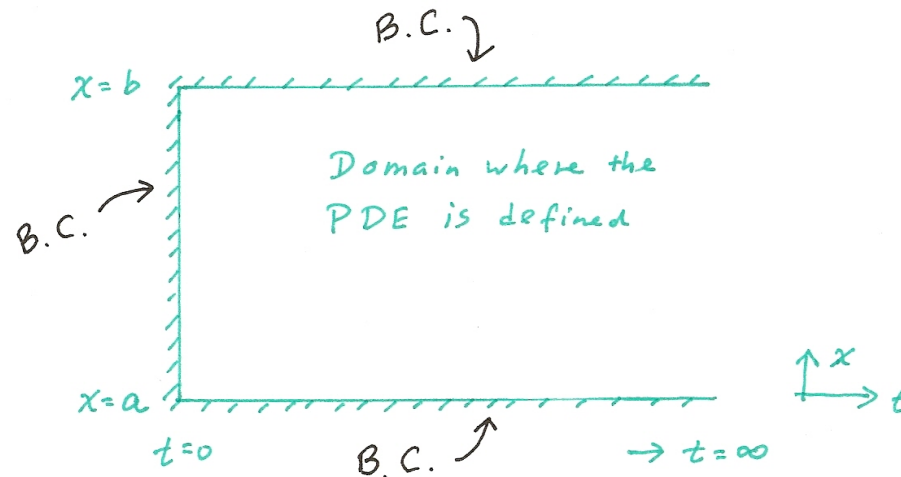 B.C.
x=b
Domain where the
PDE is defined
B.C.
x
x=a
t
t=0
B.C.
→ t=∞